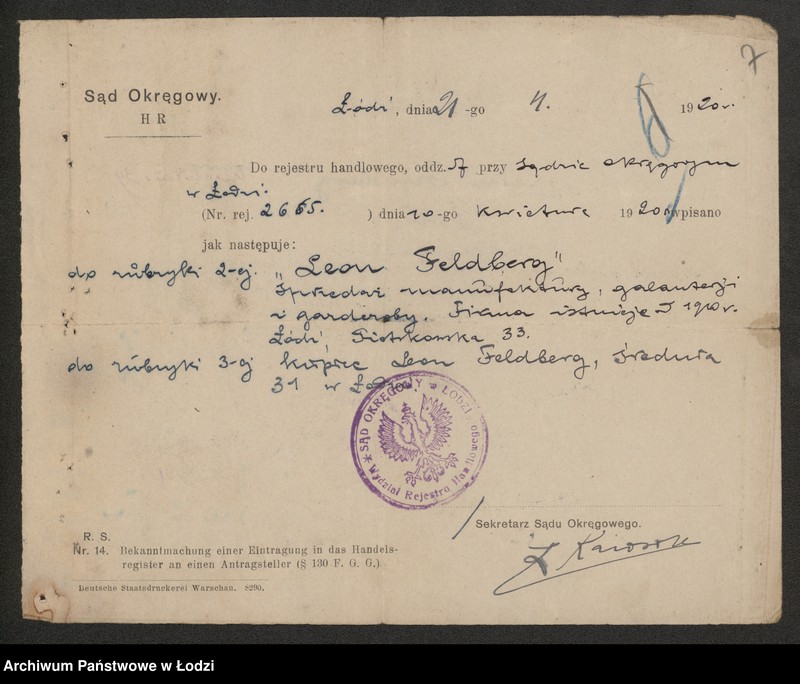 7
Sąd Okręgowy.
H R
Łódź, dnia 21-go 4. 1920 r.
Do rejestru handlowego, oddz. A przy Sądzie Okręgowym
w Łodzi.
(Nr. rej. 2665. ) dnia 10-go kwietnia 1920 r. wpisano
jak następuje:
do rubryki 2-ej. "Leon Feldberg"
Sprzedaż manufaktury, galanterji
i garderoby. Firma istnieje od 1910 r.
Łódź, Piotrkowska 33.
do rubryki 3-ej kupiec Leon Feldberg, Średnia
31 w Łodzi.
* SĄD OKRĘGOWY w ŁODZI *
Wydział Rejestru Handlowego
Sekretarz Sądu Okręgowego.
R. S.
Nr. 14. Bekanntmachung einer Eintragung in das Handels-
register an einen Antragsteller (§ 130 F. G. G.)
Deutsche Staatsdruckerei Warschau. 8290.
Archiwum Państwowe w Łodzi